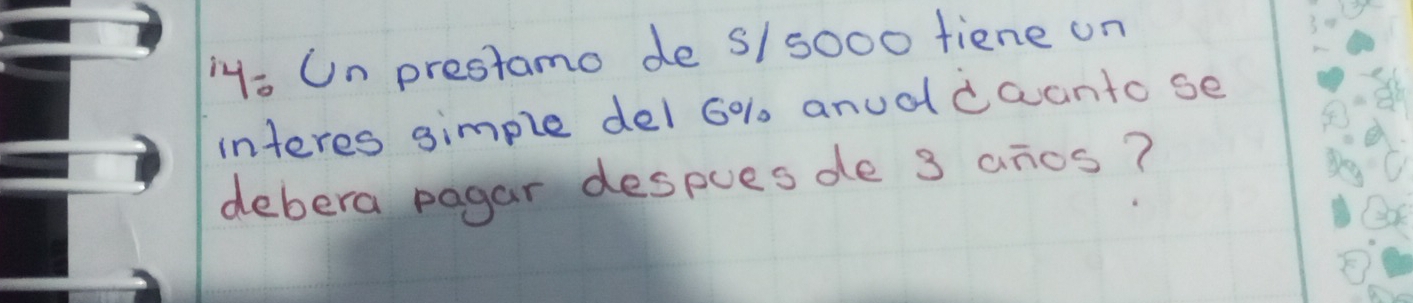 14. Un prestamo de S/5000 tiene un
interes simple del 6% anual ¿cuanto se
debera pagar despues de 3 años?